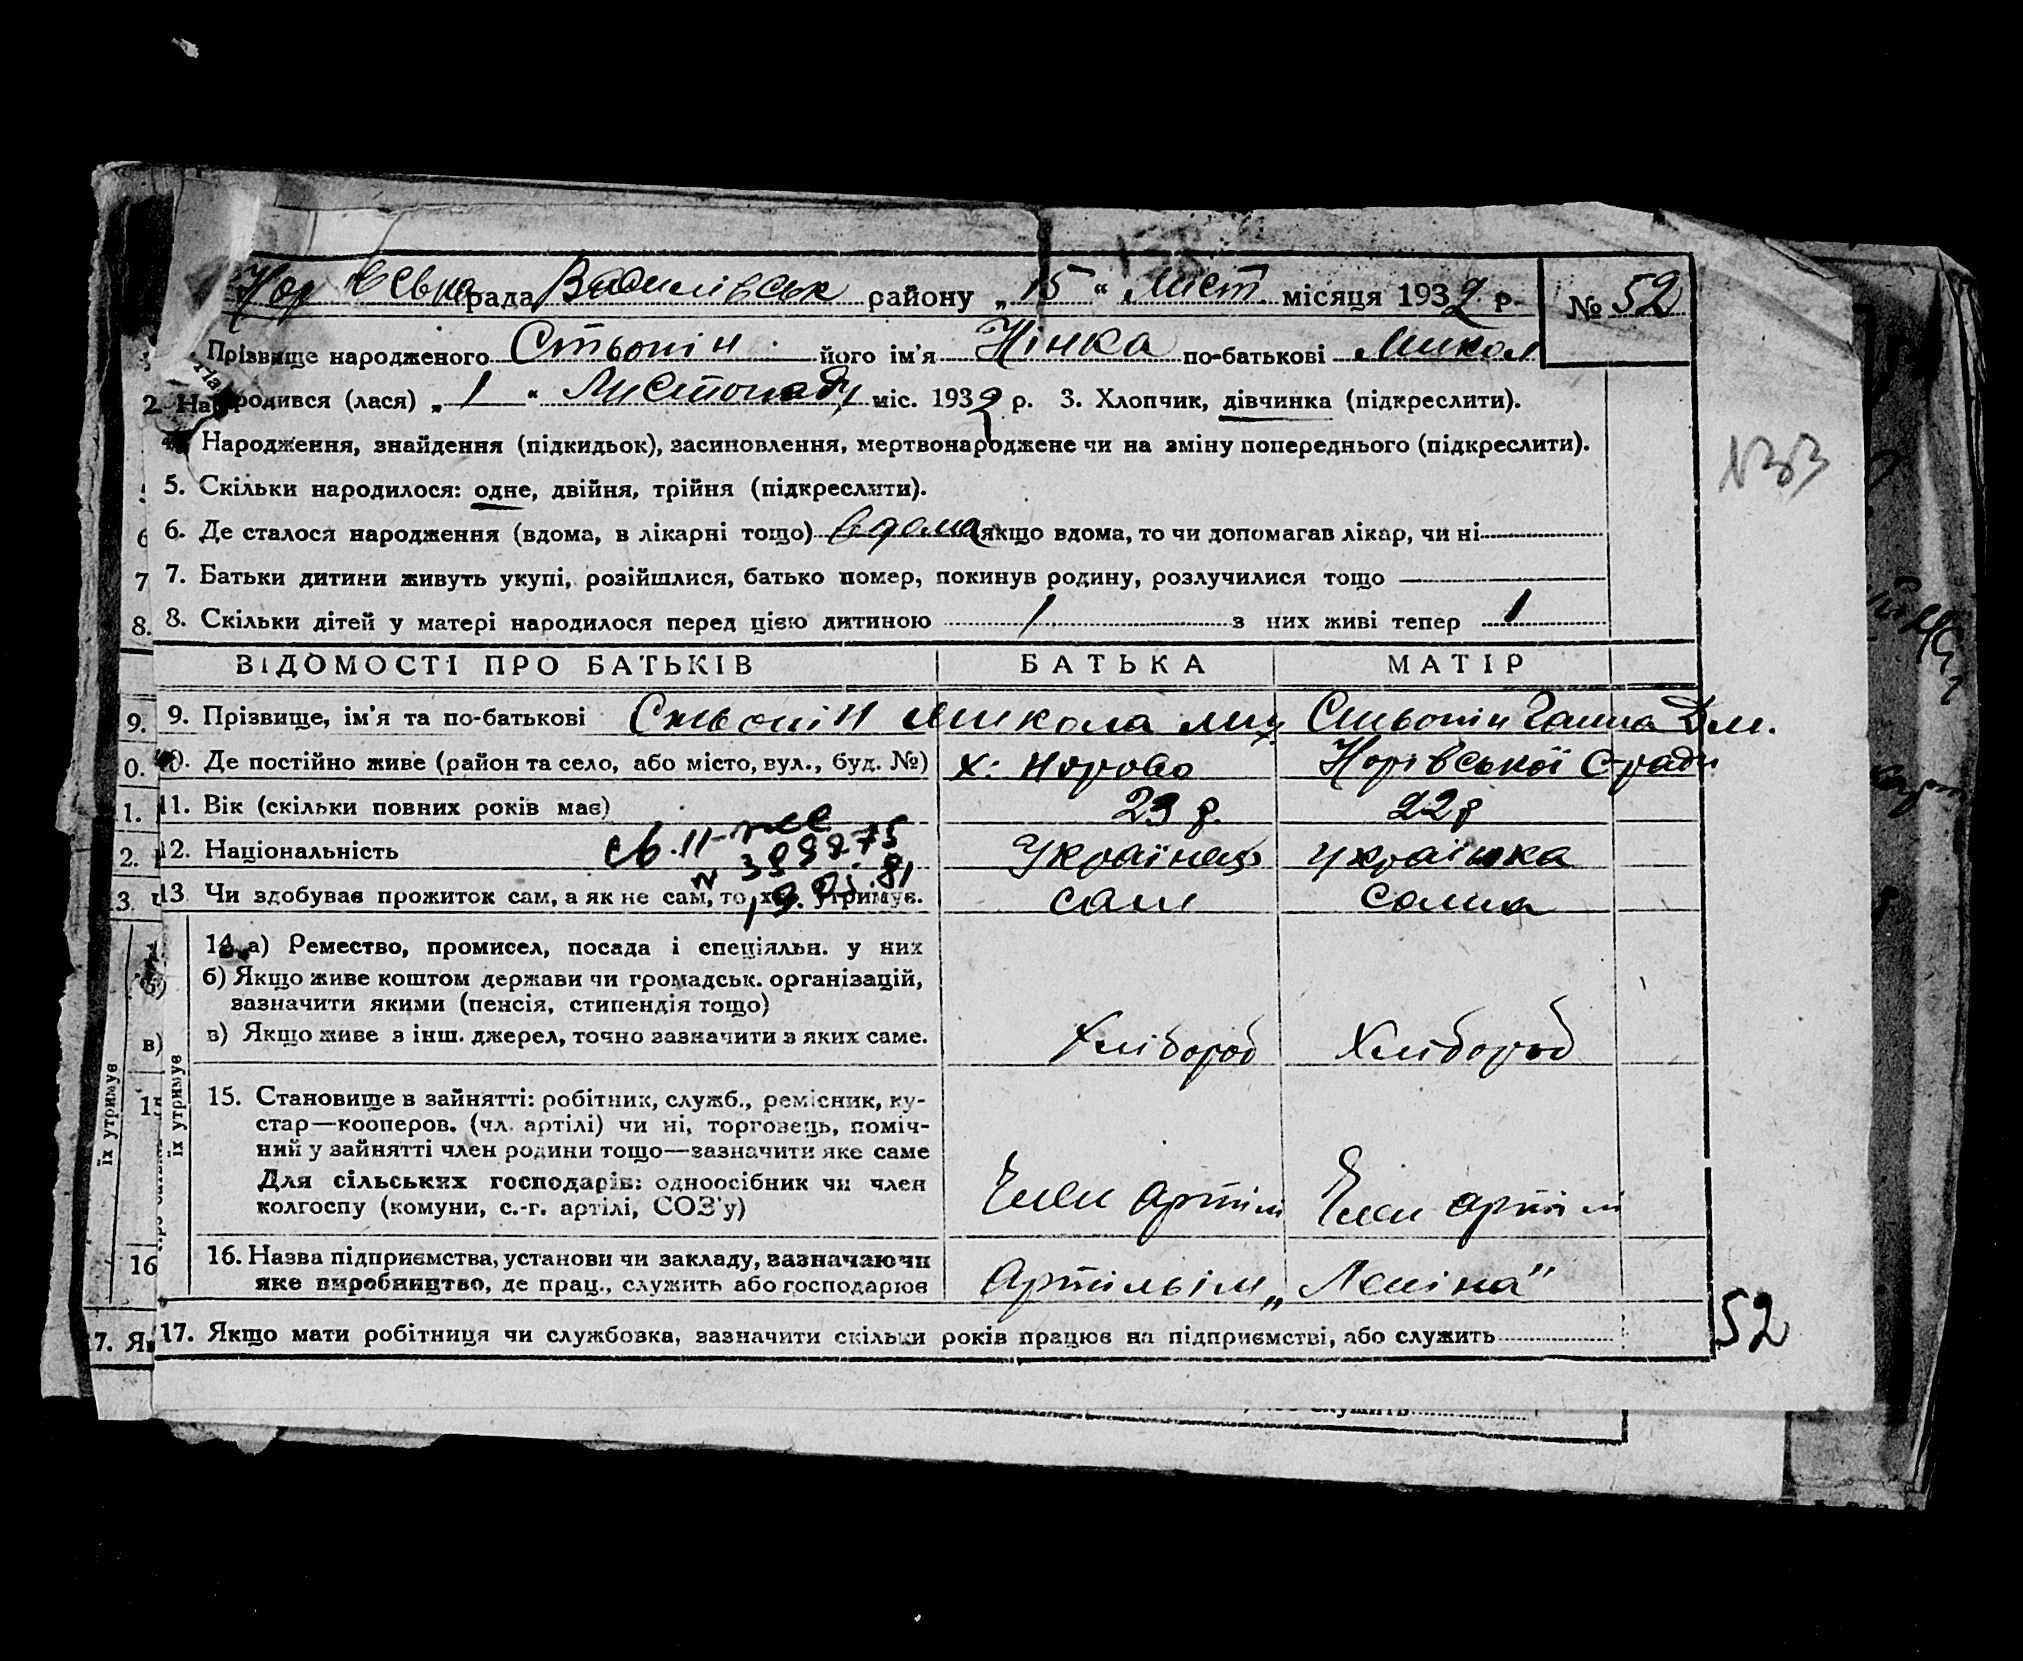 Нор івська рада Василівськ району „ 15 “ Лист. місяця 1932 р. № 52
Прізвище народженого Стьопін його ім'я Нінка по-батькові Микол
2. Народився (лася) „ 1 “ Листопаду міс. 1932 р. 3. Хлопчик, дівчинка (підкреслити).
Народження, знайдення (підкидьок), засиновлення, мертвонароджене чи на зміну попереднього (підкреслити).
133
5. Скільки народилося: одне, двійня, трійня (підкреслити).
6. Де сталося народження (вдома, в лікарні тощо) вдома якщо вдома, то чи допомагав лікар, чи ні
7. Батьки дитини живуть укупі, розійшлися, батько помер, покинув родину, розлучилися тощо —
8. Скільки дітей у матері народилося перед цією дитиною 1 з них живі тепер 1
ВІДОМОСТІ ПРО БАТЬКІВ БАТЬКА МАТІР
9. Прізвище, ім'я та по-батькові Стьопін Микола Стьопін Ганна Дм.
10. Де постійно живе (район та село, або місто, вул., буд. №) х. Норово Норівської с-ради
11. Вік (скільки повних років має) 23 р. 22 р
12. Національність Українець українка
св. II-
№ 399275
13 Чи здобуває прожиток сам, а як не сам, то хто утримує. сам сама
14. а) Ремество, промисел, посада і спеціяльн. у них
б) Якщо живе коштом держави чи громадськ. організацій,
зазначити якими (пенсія, стипендія тощо)
в) Якщо живе з інш. джерел, точно зазначити з яких саме. Хлібороб Хлібороб
їх утримує
15. Становище в зайнятті: робітник, служб., ремісник, ку-
стар—кооперов. (чл. артілі) чи ні, торговець, поміч-
ний у зайнятті член родини тощо—зазначити яке саме
Для сільських господарів: одноосібник чи член
колгоспу (комуни, с.-г. артілі, СОЗ'у) Член артілі Член артілі
16. Назва підприємства, установи чи закладу, зазначаючи
яке виробництво, де прац., служить або господарює Артіль ім „Леніна"
17. Якщо мати робітниця чи службовка, зазначити скільки років працює на підприємстві, або служить
52